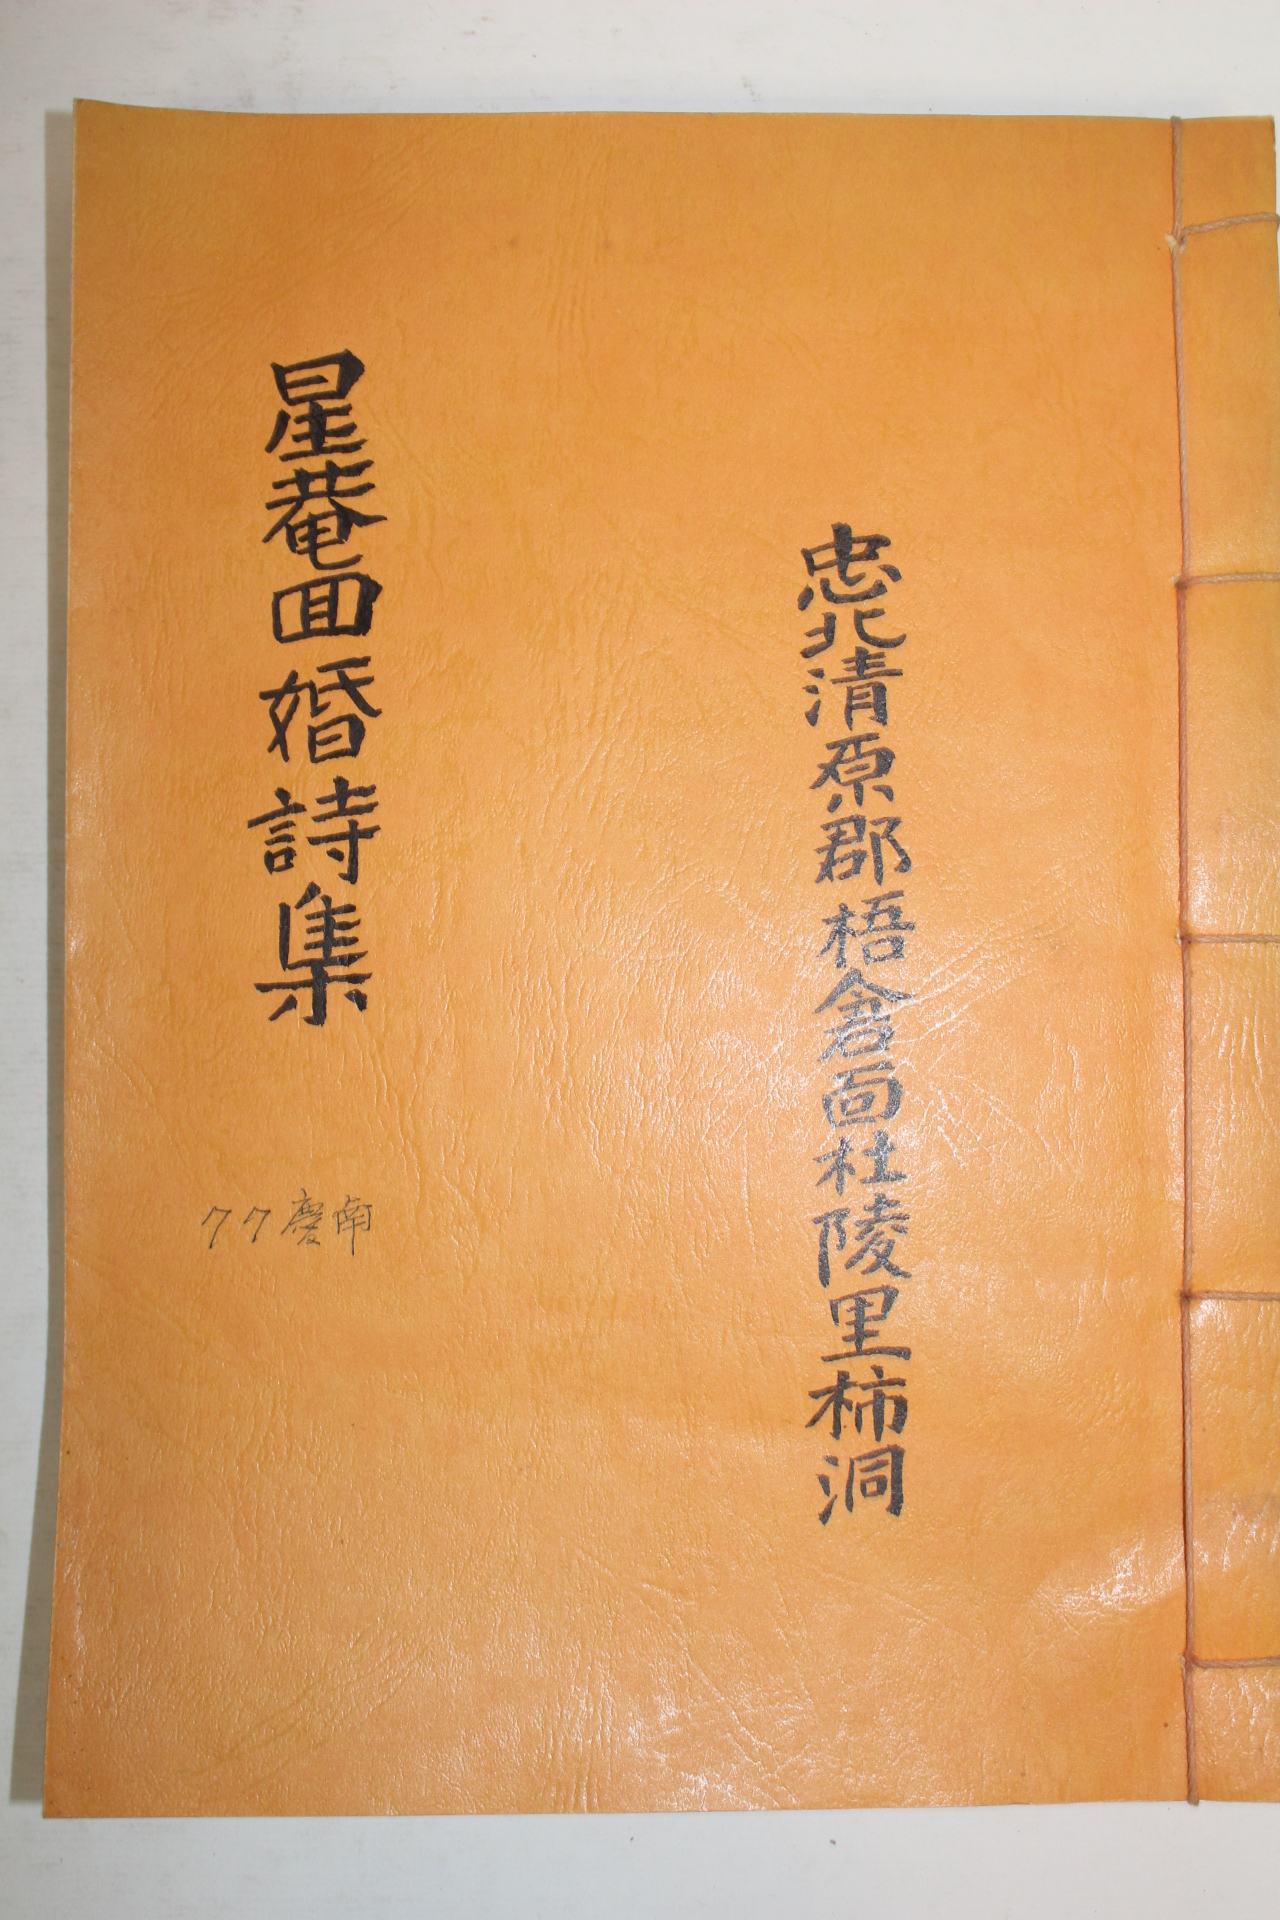 忠北清原郡梧倉面杜陵里柿洞
星菴回婚詩集
77慶南